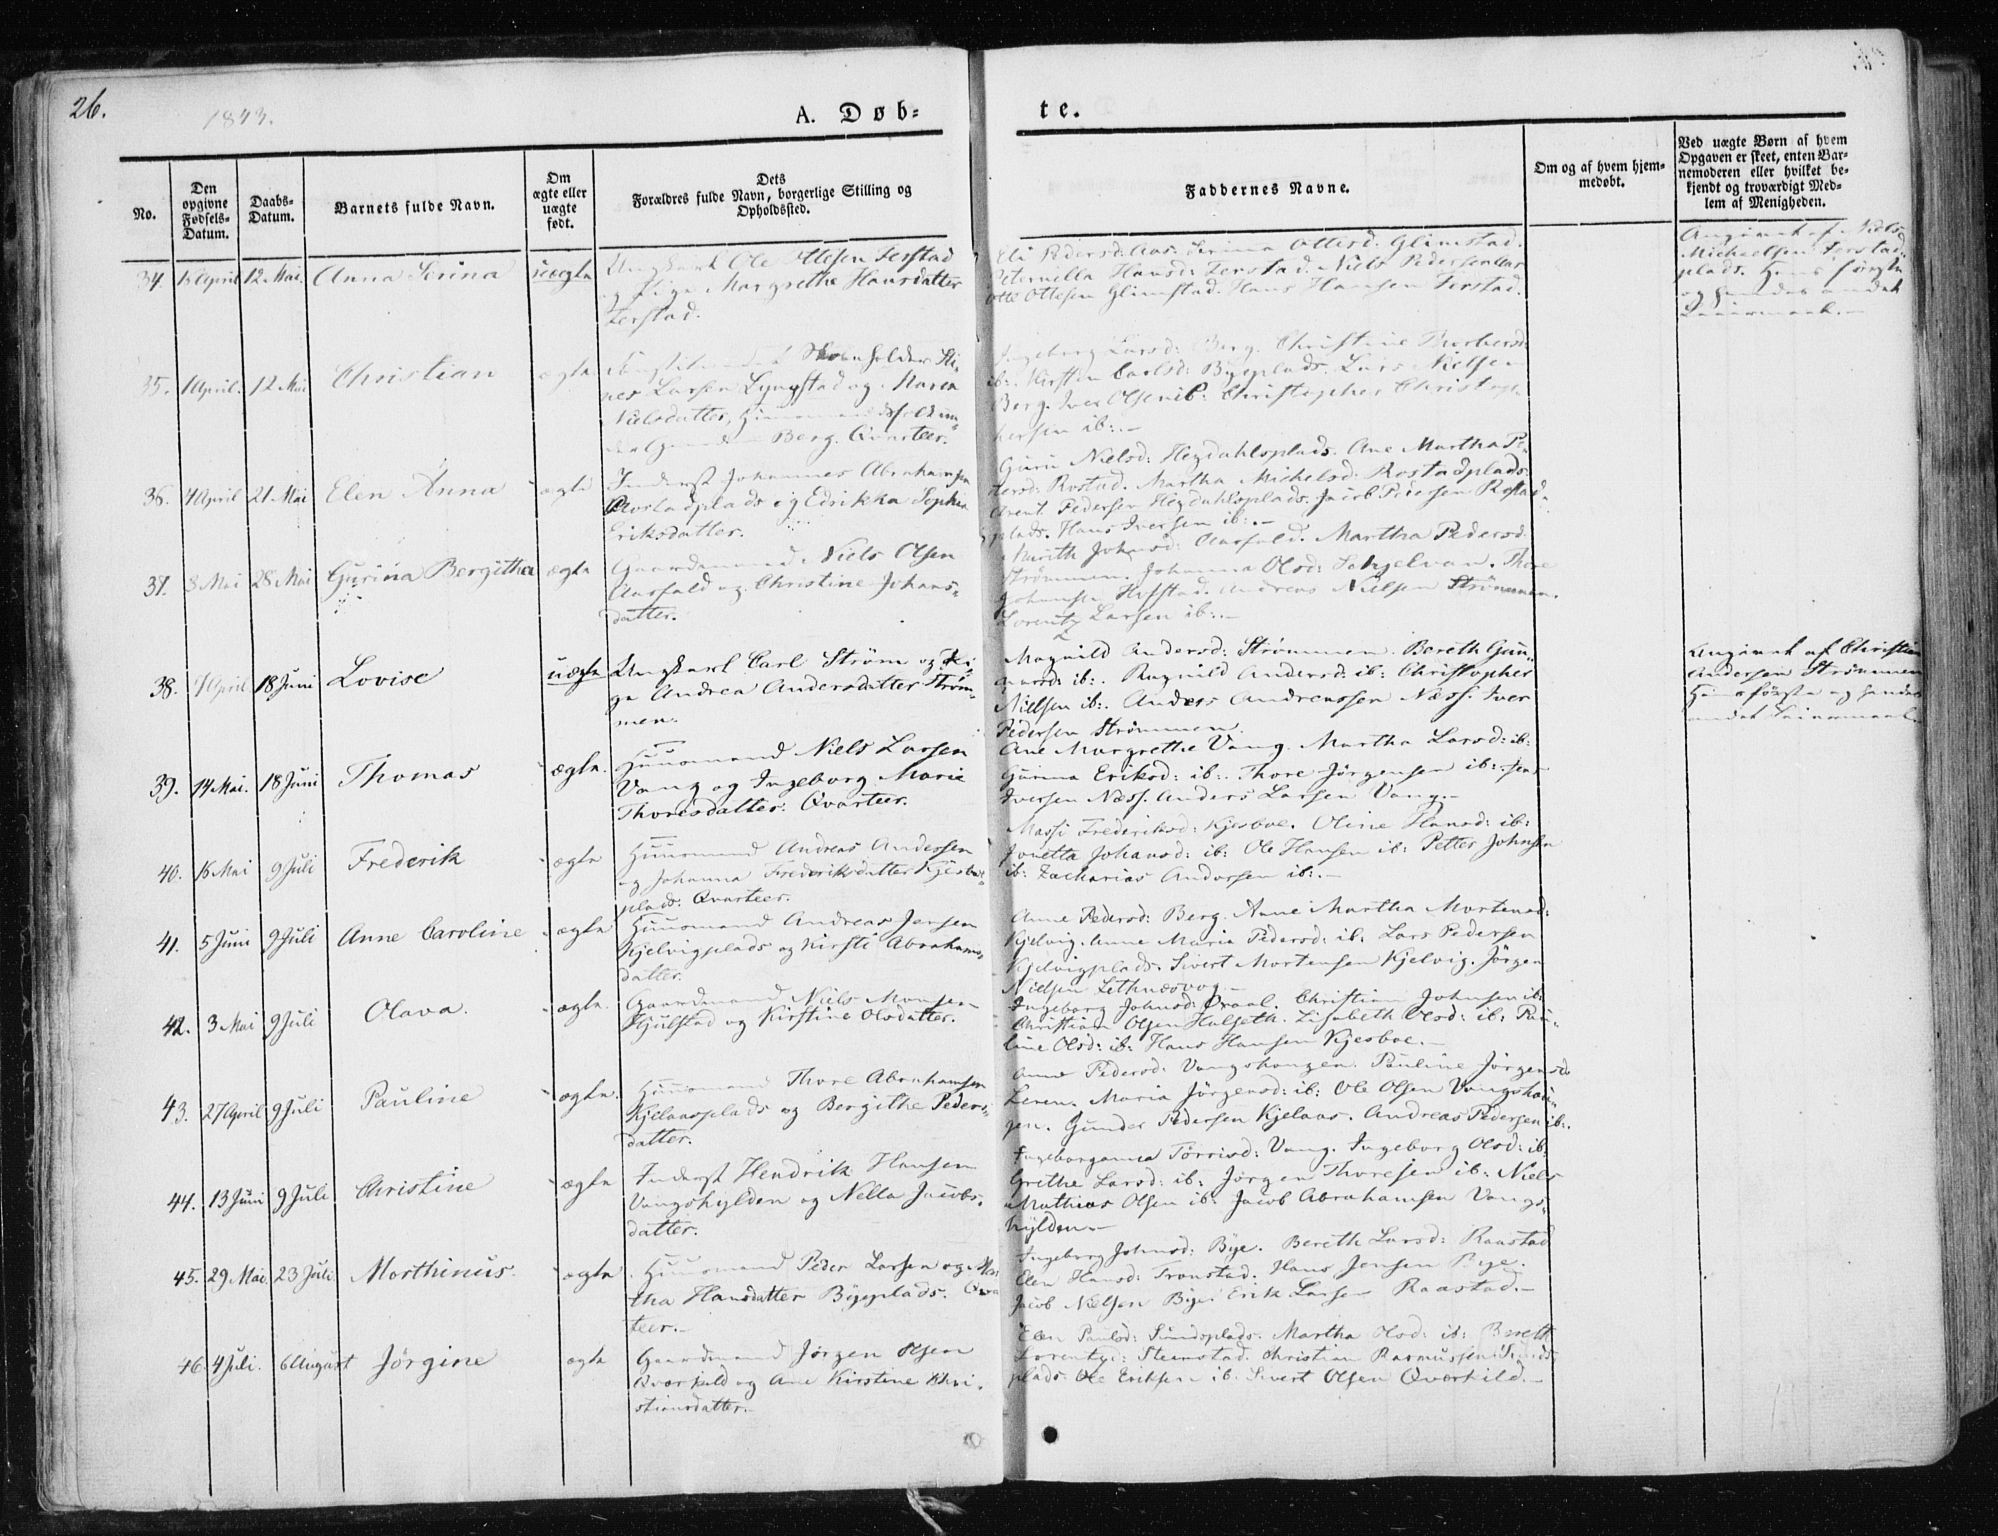 26.
1843.
A. Døb=
te.
No.
Den opgivne Fødsels-Datum.
Daabs-Datum.
Barnets fulde Navn.
Om ægte eller uægte født.
Dets Forældres fulde Navn, borgerlige Stilling og Opholdssted.
Faddernes Navne.
Om og af hvem hjemmedøbt.
Ved uægte Børn af hvem Opgaven er skeet, enten Barnemoderen eller hvilket bekjendt og troværdigt Medlem af Menigheden.
34. April 12 Mai. Anna Serina uægte
Ungkarl Ole Ottesen Ferstad
og Pige Margrethe Hansdatter
Ferstad.
Eli Pedersd: Aas. Serina Ottersd: Glimstad.
Peternilla Hansd: Ferstad. Niels Pedersen Aas
Otte Ottesen Glimstad. Hans Hansen Ferstad.
Angivet af Niels
Michaelsen Ferstad-
plads. Hans første
og hendes andet
Leiermaal.
35. April. 12 Mai Christian ægte
Skoleholder Sti-
nes Larsen Lyngstad og Maren
Nielsdatter,
Berg. Qvarteer.
Ingeborg Larsd: Berg. Christine
ib: Kirsten Carlsd: Byeplads. Lars Nielsen
Berg. Iver Olsen ib: Christopher Christop-
hersen ib:.-
36. 4 April 21 Mai Elen Anna ægte
Inderst Johannes Abrahamsen
Rostadplads og Edrikka Sophia
Eriksdatter.
Guru Nielsd: Hegdahlsplads. Ane Martha Pe-
tersd: Rostad. Martha Michelsd: Rostadplads.
Arent Pedersen Hegdahlsplads. Jacob Petersen Rostad-
plads. Hans Iversen ib:.-
37. 3 Mai 28 Mai Gurina Bergitha ægte
Gaardmand Niels Olsen
Aasfald og Christine Johans-
datter.
Marith Johnsd: Aasfald. Martha Pedersd:
Strømmen. Johanna Olsd: Thore
Johansen Hofstad. Andreas Nielsen Strømmen.
Lorentz Larsen ib:.-
38. 7 April 18 Juni Lovise uægte
Ungkarl Carl Strøm og Pi-
ge Andrea Andersdatter Strøm-
men.
Magnild Andersd: Strømmen. Bereth Gun-
narsd: ib:. Ragnild Andersd: ib: Christopher
Nielsen ib:. Anders Andreassen Næss. Iver
Pedersen Strømmen.
Angivet af Christian
Andersen Strømmen
Hans første og hendes
andet Leiermaal.
39. 14 Mai. 18 Juni Thomas ægte.
Huusmand Niels Larsen
Vang og Ingeborg Marie
Thoresdatter. Qvarteer.
Ane Margrethe Vang. Martha Larsd: ib:
Gurina Eriksd: ib:. Thore Jörgensen ib:. Jens
Iversen Næss. Anders Larsen Vang.-
40. 16 Mai 9 Juli Frederik ægte
Huusmand Andreas Andersen
og Johanna Frederiksdatter Kjesboe-
plads. Qvarteer.
Massi Frederiksd: Kjesboe. Oline Hansd: ib:
Jonetta Johansd: ib: Ole Hansen ib: Petter Johnsen
ib: Zacharias Andersen ib:.-
41. 5 Juni 9 Juli Anne Caroline ægte
Huusmand Andreas Jensen
Kjelvigplads og Kirsti Abrahams-
datter.
Anne Pedersd: Berg. Anne Martha Mortensd:
Kjelvig. Anne Maria Pedersd: ib: Lars Pedersen
Kjelvigplads. Sivert Mortensen Kjelvig. Jörgen
Nielsen Lethnesvog.-
42. 3 Mai 9 Juli Olava. ægte.
Gaardmand Niels Monsen
Hjulstad og Kirstine Olsdatter.
Ingeborg Johnsd: Øraal. Christian Johnsen ib:
Christian Olsen Hulseth. Lisabeth Olsd: ib: Pau-
line Olsd: ib: Hans Hansen Kjesboe.-
43. 27 April 9 Juli Pauline ægte.
Huusmand Thore Abrahamsen
Kjelaasplads og Bergithe Peders-
datter.
Anne Pedersd: Vangshougen. Pauline Jørgensd:
Leren. Maria Jörgensd: ib: Ole Olsen Vangshou-
gen. Gunder Pedersen Kjelaas. Andreas Pedersen ib:.
44. 13 Juni 9 Juli Christine ægte
Inderst Hendrik Hansen
Vangshylden og Nella Jacobs-
datter.
Ingeborganna Törrisd: Vang. Ingeborg Olsd: ib:
Grethe Larsd: ib: Jørgen Thoresen ib: Niels
Mathias Olsen ib: Jacob Abrahamsen Vangs-
hylden.-
45. 29 Mai. 23 Juli. Morthinus. ægte
Huusmand Peder Larsen og Mar
tha Hansdatter Byeplads. Qvar
teer.-
Ingeborg Johnsd: Bye. Bereth Larsd: Raastad
Elen Hansd: Tronstad. Hans Jensen Bye.
Jacob Nielsen Bye. Erik Larsen Raastad.-
46. 4 Juli. 6 August Jørgine ægte
Gaardmand Jørgen Olsen
Qværkild og Ane Kirstine Chri-
stiansdatter.-
Elen Paulsd: Sundsplads. Martha Olsd: ib: Bereth
Lorentzd: Steenstad. Christian Rasmussen Sunds-
plads. Ole Eriksen ib. Sivert Olsen Qværkild.-